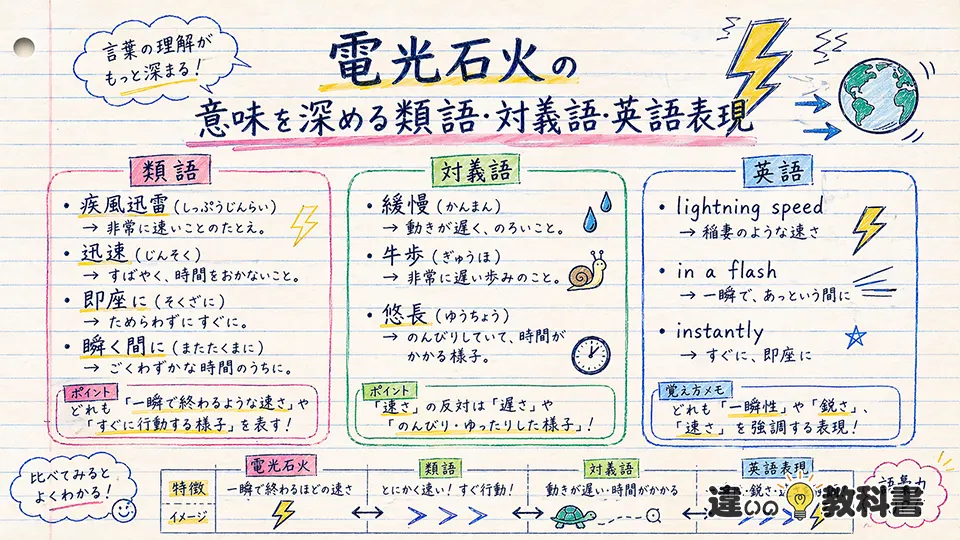 言葉の理解が
もっと深まる！
電光石火の
意味を深める類語・対義語・英語表現
類語
・疾風迅雷（しっぷうじんらい）
→ 非常に速いことのたとえ。
・迅速（じんそく）
→ すばやく、時間をおかないこと。
・即座に（そくざに）
→ ためらわずにすぐに。
・瞬く間に（またたくまに）
→ ごくわずかな時間のうちに。
ポイント
どれも「一瞬で終わるような速さ」や
「すぐに行動する様子」を表す！
対義語
・緩慢（かんまん）
→ 動きが遅く、のろいこと。
・牛歩（ぎゅうほ）
→ 非常に遅い歩みのこと。
・悠長（ゆうちょう）
→ のんびりしていて、時間が
かかる様子。
ポイント
「速さ」の反対は「遅さ」や
「のんびり・ゆったりした様子」！
英語
・lightning speed
→ 稲妻のような速さ
・in a flash
→ 一瞬で、あっという間に
・instantly
→ すぐに、即座に
覚え方メモ
どれも「一瞬性」や「鋭さ」、
「速さ」を強調する表現！
比べてみると
よくわかる！
電光石火 類語 対義語 英語表現
特徴 一瞬で終わるほどの速さ とにかく速い！すぐ行動！ 動きが遅い・時間がかかる ・鋭さ・
イメージ
違いの教科書